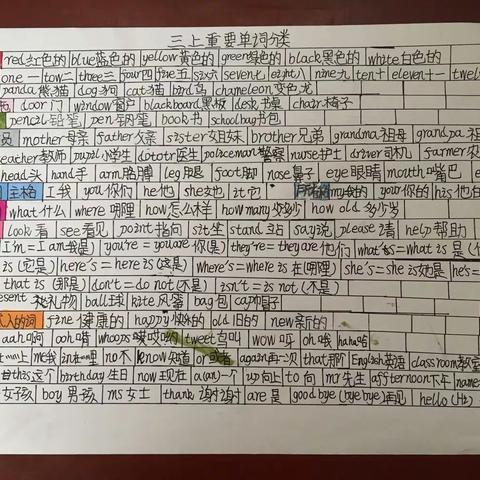 三上重要单词分类
red红色的 blue蓝色的 yellow黄色的 green绿色的 black黑色的 white白色的
one一 tow二 three三 four四 five五 six六 seven七 eight八 nine九 ten十 eleven十一 twel
panda熊猫 dog狗 cat猫 bird鸟 chameleon变色龙
door门 window窗户 blackboard黑板 desk书桌 chair椅子
pencil铅笔 pen钢笔 book书 schoolbag书包
员 mother母亲 father父亲 sister姐妹 brother兄弟 grandma祖母 grandpa祖
eacher教师 pupil小学生 dototr医生 policeman警察 nurse护士 driver司机 farmer农
head头 hand手 arm胳膊 leg腿 foot脚 nose鼻子 eye眼睛 mouth嘴巴 e
主格 I我 you你们 he他 she她 it它 my我的 your你的 his他的
what什么 where哪里 how怎么样 how many多少 how old多少岁
look看 see看见 point指向 sit坐 stand站 say说 please请 help帮助
I'm=I am我是 you're=you are你(是) they're=they are他们 what's=what is是
is(它是) here's=here is(这是) where's=where is在(哪里) she's=she is她是 he's=
that is(那是) don't=do not(不是) isn't=is not(不是)
esent 礼物 ball球 kite风筝 bag包 cap帽子
人的词 fine健康的 happy快乐的 old旧的 new新的
aah啊 ooh嗬 whoops哎哟 tweet鸟叫 wow呀 oh哦 haha哈
me我 in在…里 no不 know知道 or或者 again再一次 that那个 English英语 classroom教室
this这个 birthday生日 now现在 a(an)一个 up向上 to向 mr先生 affternoon下午 name
女孩 boy男孩 ms女士 thank谢谢 are是 goodbye(bye bye)再见 hello(Hi)